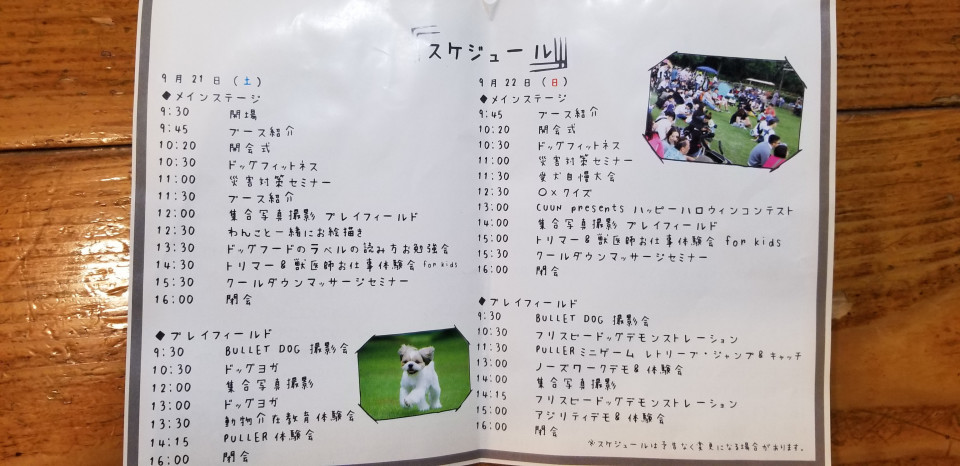 スケジュール
9月21日（土）
◆メインステージ
9:30 開場
9:45 ブース紹介
10:20 開会式
10:30 ドッグフィットネス
11:00 災害対策セミナー
11:30 ブース紹介
12:00 集合写真撮影 プレイフィールド
12:30 わんこと一緒にお絵描き
13:30 ドッグフードのラベルの読み方お勉強会
14:30 トリマー&獣医師お仕事体験会 for kids
15:30 クールダウンマッサージセミナー
16:00 閉会
◆プレイフィールド
9:30 BULLET DOG 撮影会
10:30 ドッグヨガ
12:00 集合写真撮影
13:00 ドッグヨガ
13:30 動物介在教育体験会
14:15 PULLER体験会
16:00 閉会
9月22日（日）
◆メインステージ
9:45 ブース紹介
10:20 開会式
10:30 ドッグフィットネス
11:00 災害対策セミナー
11:30 愛犬自慢大会
12:30 〇×クイズ
13:00 CUUN presents ハッピーハロウィンコンテスト
14:00 集合写真撮影 プレイフィールド
15:00 トリマー&獣医師お仕事体験会 for kids
15:30 クールダウンマッサージセミナー
16:00 閉会
◆プレイフィールド
9:30 BULLET DOG 撮影会
10:30 フリスビードッグデモンストレーション
11:30 PULLERミニゲーム レトリーブ・ジャンプ&キャッチ
13:00 ノーズワークデモ&体験会
14:00 集合写真撮影
14:15 フリスビードッグデモンストレーション
15:00 アジリティデモ&体験会
16:00 閉会
※スケジュールは予告なく変更になる場合があります。